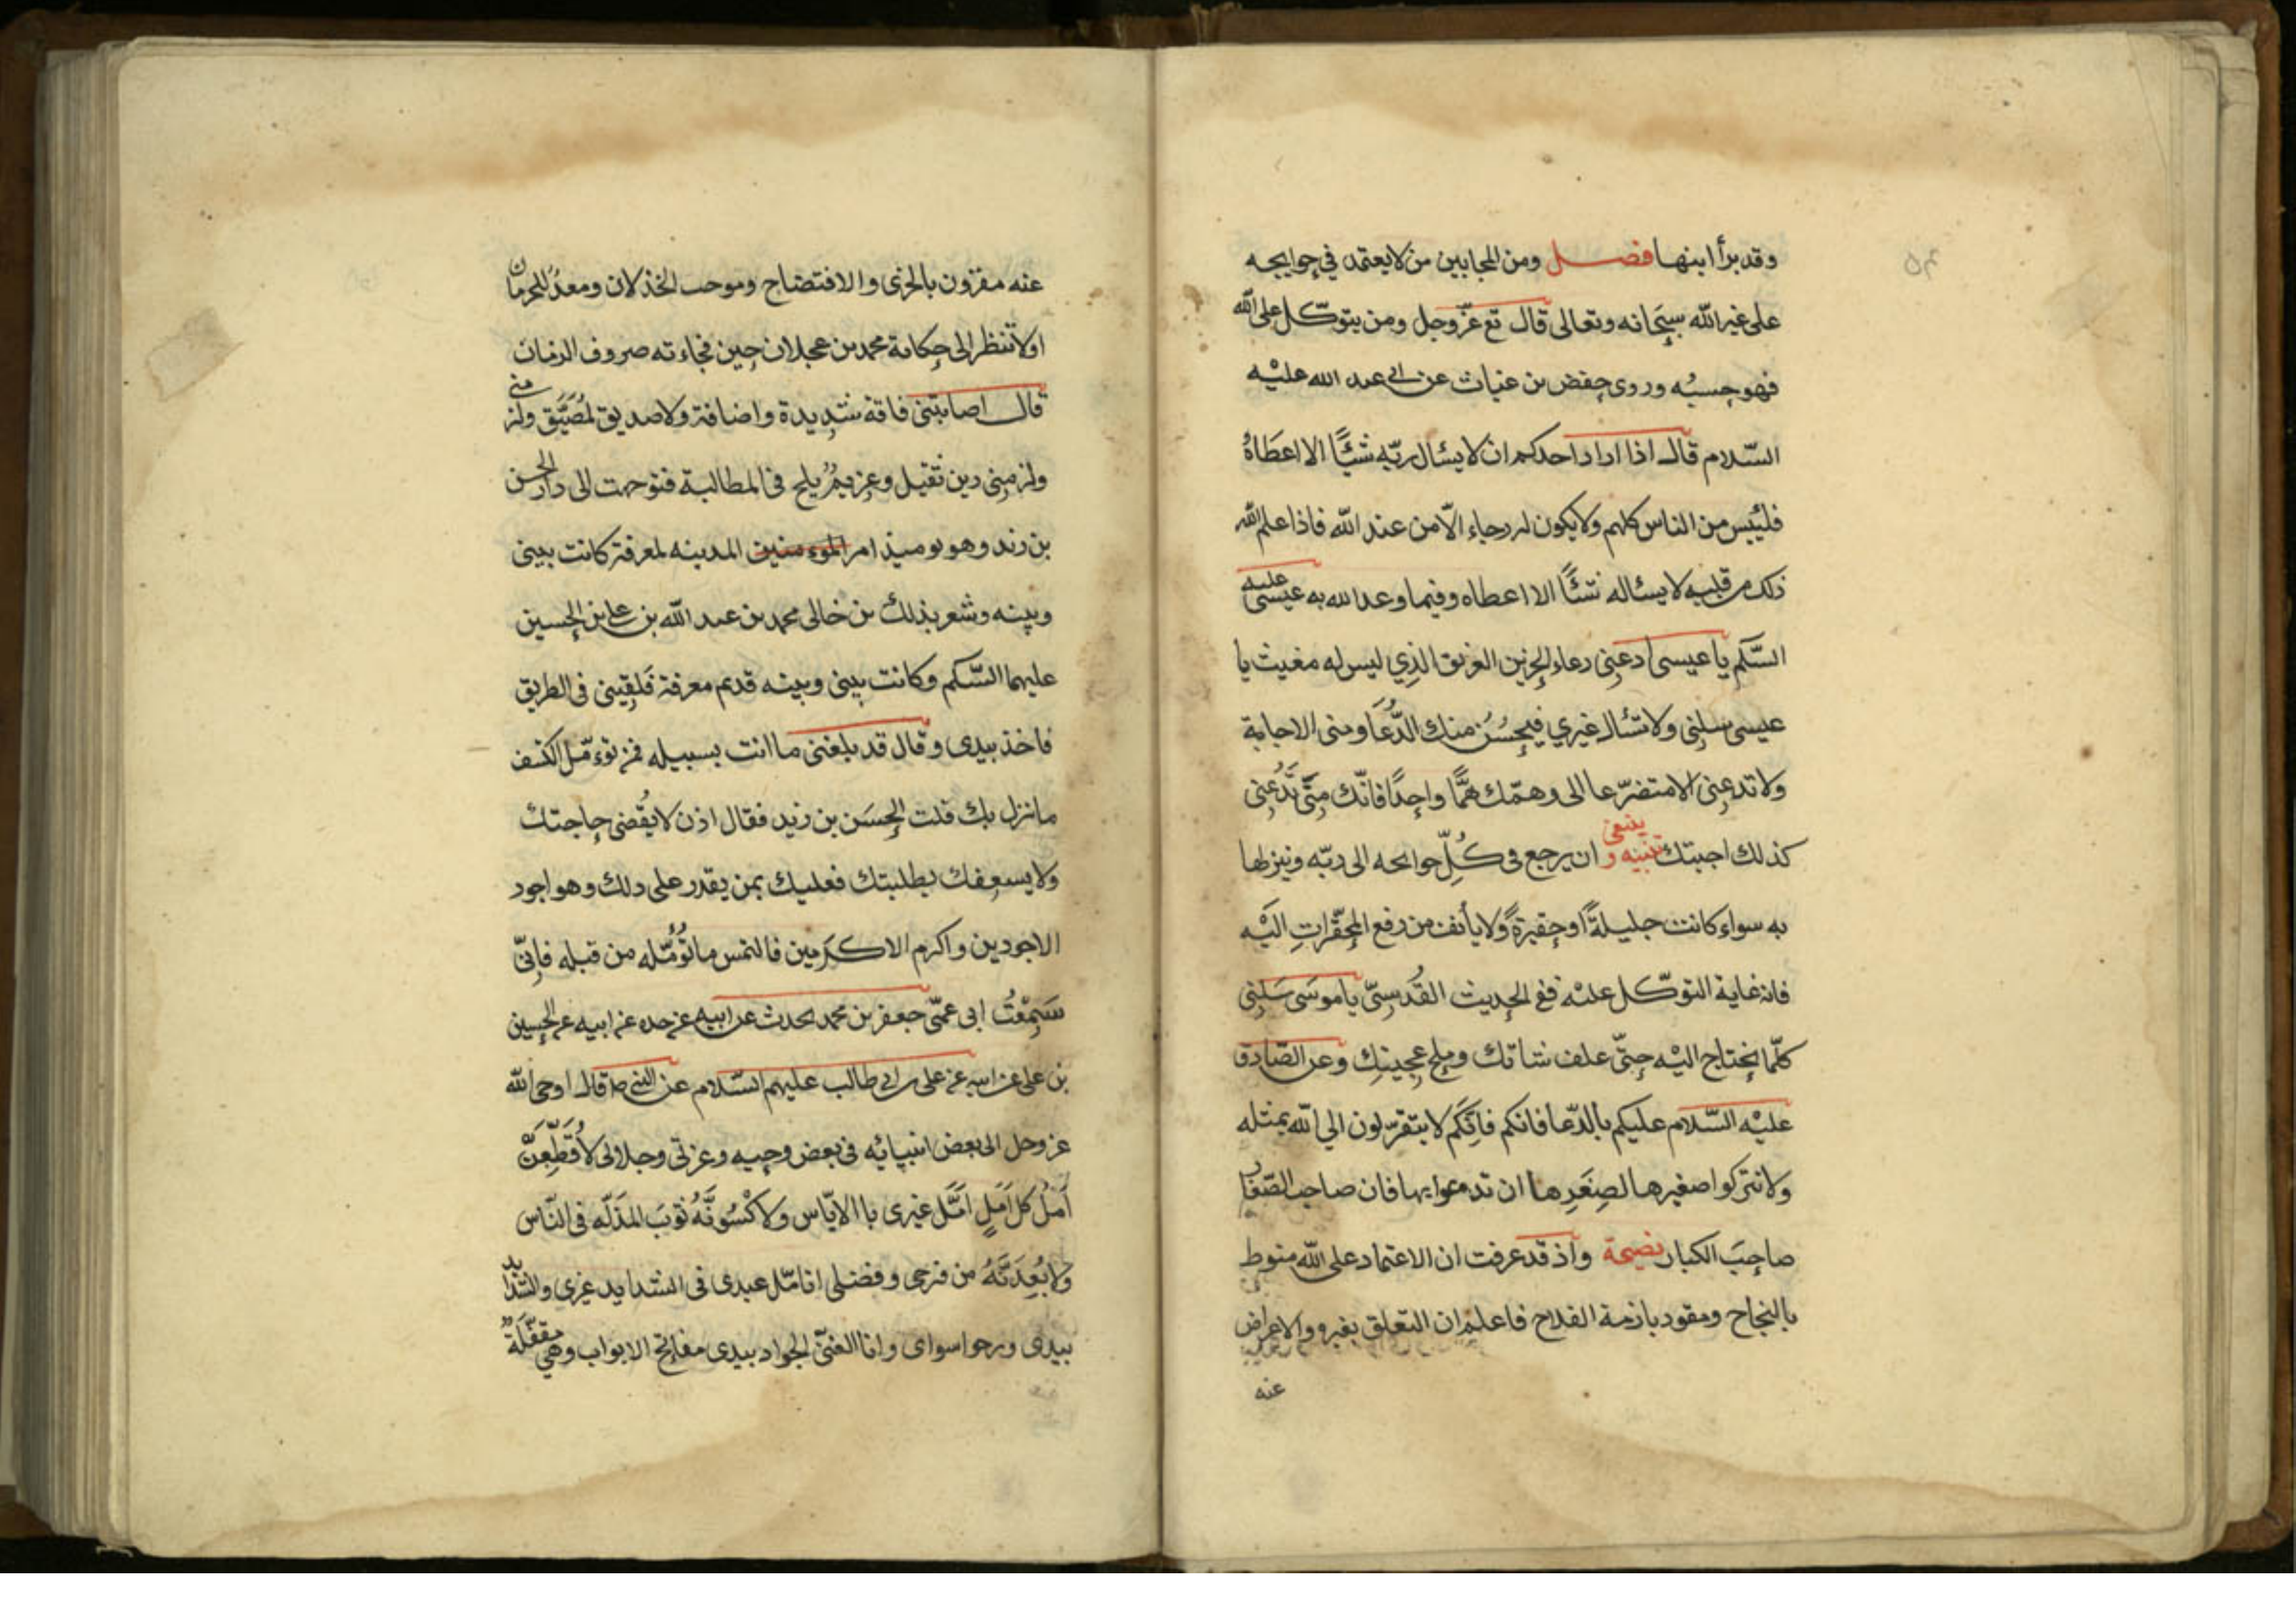 وقد برأ ابنها فصل ومن المجابين من لا يعتمد في حوايجه
على غير الله سبحانه وتعالى قال تع عز وجل ومن يتوكل على الله
فهو حسبه وروى حفض بن غياث عن ابي عبد الله عليه
السلام قال اذا اراد احدكم ان لا يسال ربه شيئا الا اعطاه
فليئيس من الناس كلهم ولا يكون له رجاء الا من عند الله فاذا علم الله
ذلك من قلبه لا يساله شئا الا اعطاه وفيما وعد الله به عيسى عليه
السلم يا عيسى ادعنى دعاء الحزين الغريق الذي ليس له مغيث يا
عيسى سلنى ولا تسال غيري فيحسن منك الدعا ومنى الاجابة
ولا تدعنى الا متضرعا الى وهمك هما واحدا فانك متى تدعنى
كذلك اجبتك تنبيه و ينبغى ان يرجع فى كل حوايجه الى ربه وينزلها
به سواء كانت جليلة او حقيرة ولا يأنف من رفع المحقرات اليه
فانه غاية التوكل عليه ففى الحديث القدسي يا موسى سلنى
كلما تحتاج اليه حتى علف شاتك وملح عجينك وعن الصادق
عليه السلام عليكم بالدعا فانكم فانكم لا يتقربون الى الله بمثله
ولا تتركوا صغيرها لصغرها ان تدعوا بها فان صاحب الصغار
صاحب الكبار نصيحة واذ قد عرفت ان الاعتماد على الله منوط
بالنجاح ومقود بازمة الفلاح فاعلم ان التعلق بغيره والاعراض
عنه
عنه مقرون بالخزى والافتضاح وموجب الخذلان ومعد للحرمان
اولا تنظر الى حكاية محمد بن عجلان حين فجاءته صروف الزمان
قال اصابتنى فاقة شديدة واضافة ولا صديق لمضيق ولز منى
ولزمنى دين ثقيل وغريم يلح فى المطالبة فتوجهت الى دار الحسن
بن زيد وهو يوميذ امر المؤمنين المدينه لمعرفة كانت بينى
وبينه وشعر بذلك من خالى محمد بن عبد الله بن على بن الحسين
عليهما السلم وكانت بينى وبينه قديم معرفة فلقينى فى الطريق
فاخذ بيدى وقال قد بلغنى ما انت بسبيله فمن تؤمل لكشف
ما نزل بك قلت الحسن بن زيد فقال اذن لا يقضى حاجتك
ولا يسعفك بطلبتك فعليك بمن يقدر على ذلك وهو اجود
الاجودين واكرم الاكرمين فالتمس ما تؤمله من قبله فانى
سمعت ابى عمى جعفر بن محمد يحدث عن ابيه عن جده عن ابيه عن الحسين
بن على عن ابيه عن على بن ابى طالب عليهم السلام عن النبى ص قال اوحى الله
عز وجل الى بعض انبيائه فى بعض وحيه وعزتى وجلالى لاقطعن
امل كل امل امل غيرى با الاياس ولاكسونه ثوب المذله فى الناس
ولابعدنه من فرجى وفضلى اتامل عبدى فى الشدايد غيرى والشدايد
بيدى ويرجوا سواى وانا الغنى الجواد بيدى مفاتح الابواب وهي مقفلة